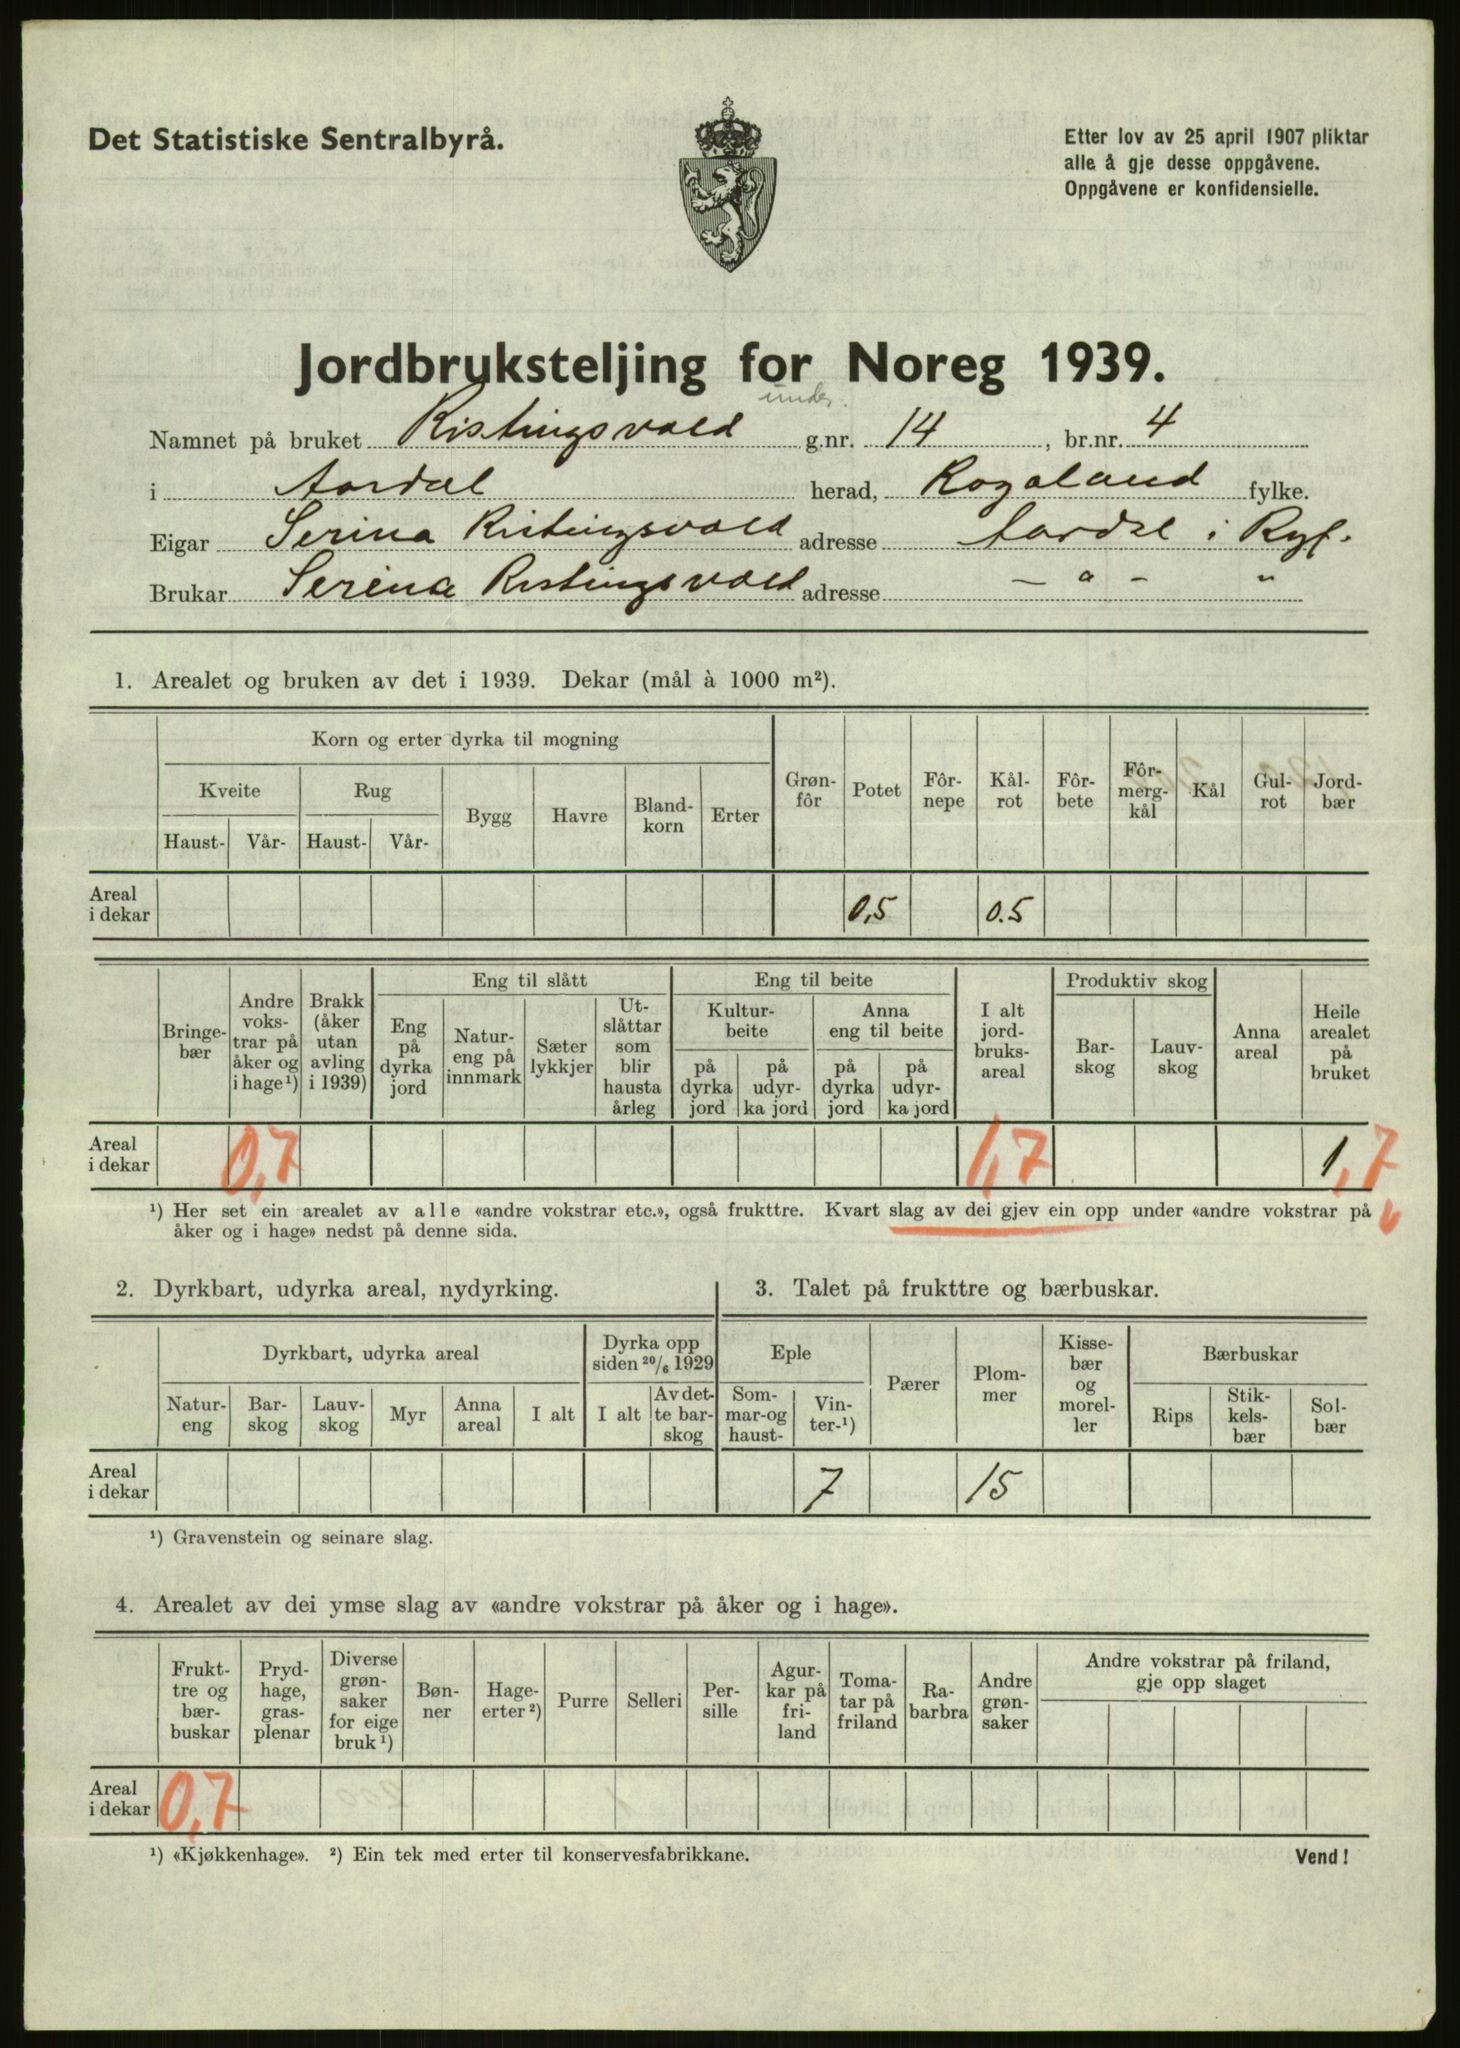 Det Statistiske Sentralbyrå.
Etter lov av 25 april 1907 pliktar
alle å gje desse oppgåvene.
Oppgåvene er konfidensielle.
Jordbruksteljing for Noreg 1939.
under.
Namnet på bruket Ristingsvold g.nr. 14, br.nr. 4
i Aardal herad, Rogaland fylke.
Eigar Serina Ristingsvold adresse Aardal i Ryf.
Brukar Serina Ristingsvold adresse — " — "
1. Arealet og bruken av det i 1939. Dekar (mål à 1000 m²).
Korn og erter dyrka til mogning
Kveite Rug
Haust- Vår- Haust- Vår-
Bygg Havre Bland-
korn Erter
Grøn-
fôr
Potet
Fôr-
nepe
Kål-
rot
Fôr-
bete
Fôr-
merg-
kål
Kål
Gul-
rot
Jord-
bær
Areal
i dekar 0,5 0.5
Bringe-
bær
Andre
voks-
trar på
åker og
i hage¹)
Brakk
(åker
utan
avling
i 1939)
Eng til slått
Eng
på
dyrka
jord
Natur-
eng på
innmark
Sæter
lykkjer
Ut-
slåttar
som
blir
hausta
årleg
Eng til beite
Kultur-
beite
på
dyrka
jord
på
udyr-
ka jord
Anna
eng til beite
på
dyrka
jord
på
udyr-
ka jord
I alt
jord-
bruks-
areal
Produktiv skog
Bar-
skog
Lauv-
skog
Anna
areal
Heile
arealet
på
bruket
Areal
i dekar 0,7 1,7 1,7
¹) Her set ein arealet av alle «andre vokstrar etc.», også frukttre. Kvart slag av dei gjev ein opp under «andre vokstrar på
åker og i hage» nedst på denne sida.
2. Dyrkbart, udyrka areal, nydyrking.
Dyrkbart, udyrka areal
Natur-
eng
Bar-
skog
Lauv-
skog
Myr
Anna
areal
I alt
Dyrka opp
siden 20/6 1929
I alt
Av det-
te bar-
skog
3. Talet på frukttre og bærbuskar.
Eple
Som-
mar-og
haust-
Vin-
ter-¹)
Pærer
Plom-
mer
Kisse-
bær
og
morel-
ler
Bærbuskar
Rips
Stik-
kels-
bær
Sol-
bær
Areal
i dekar 7 15
¹) Gravenstein og seinare slag.
4. Arealet av dei ymse slag av «andre vokstrar på åker og i hage».
Frukt-
tre og
bær-
buskar
Pryd-
hage,
gras-
plenar
Diverse
grøn-
saker
for eige
bruk¹)
Bøn-
ner
Hage-
erter²)
Purre
Selleri
Per-
sille
Agur-
kar på
fri-
land
Toma-
tar på
friland
Ra-
barbra
Andre
grøn-
saker
Andre vokstrar på friland,
gje opp slaget
Areal
i dekar 0,7
¹) «Kjøkkenhage». ²) Ein tek med erter til konservesfabrikkane.
Vend!